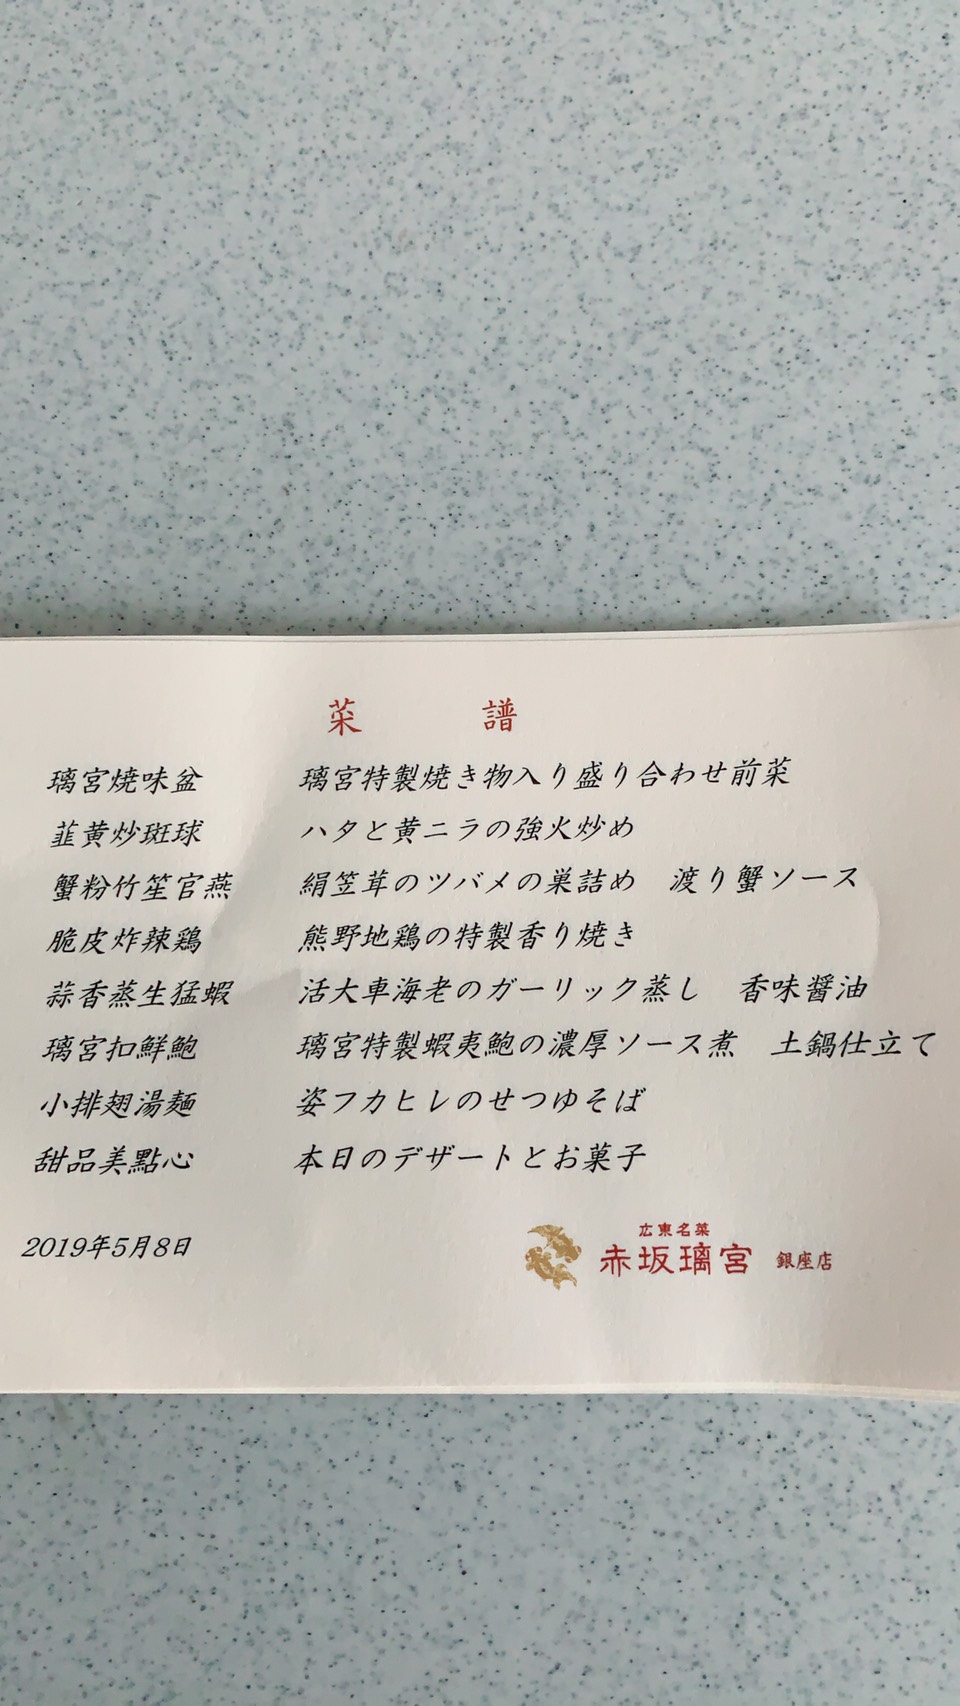 菜 譜
璃宮焼味盆 璃宮特製焼き物入り盛り合わせ前菜
韮黄炒斑球 ハタと黄ニラの強火炒め
蟹粉竹笙官燕 絹笠茸のツバメの巣詰め 渡り蟹ソース
脆皮炸辣鶏 熊野地鶏の特製香り焼き
蒜香蒸生猛蝦 活大車海老のガーリック蒸し 香味醤油
璃宮扣鮮鮑 璃宮特製蝦夷鮑の濃厚ソース煮 土鍋仕立て
小排翅湯麺 姿フカヒレのせつゆそば
甜品美點心 本日のデザートとお菓子
2019年5月8日
広東名菜
赤坂璃宮 銀座店